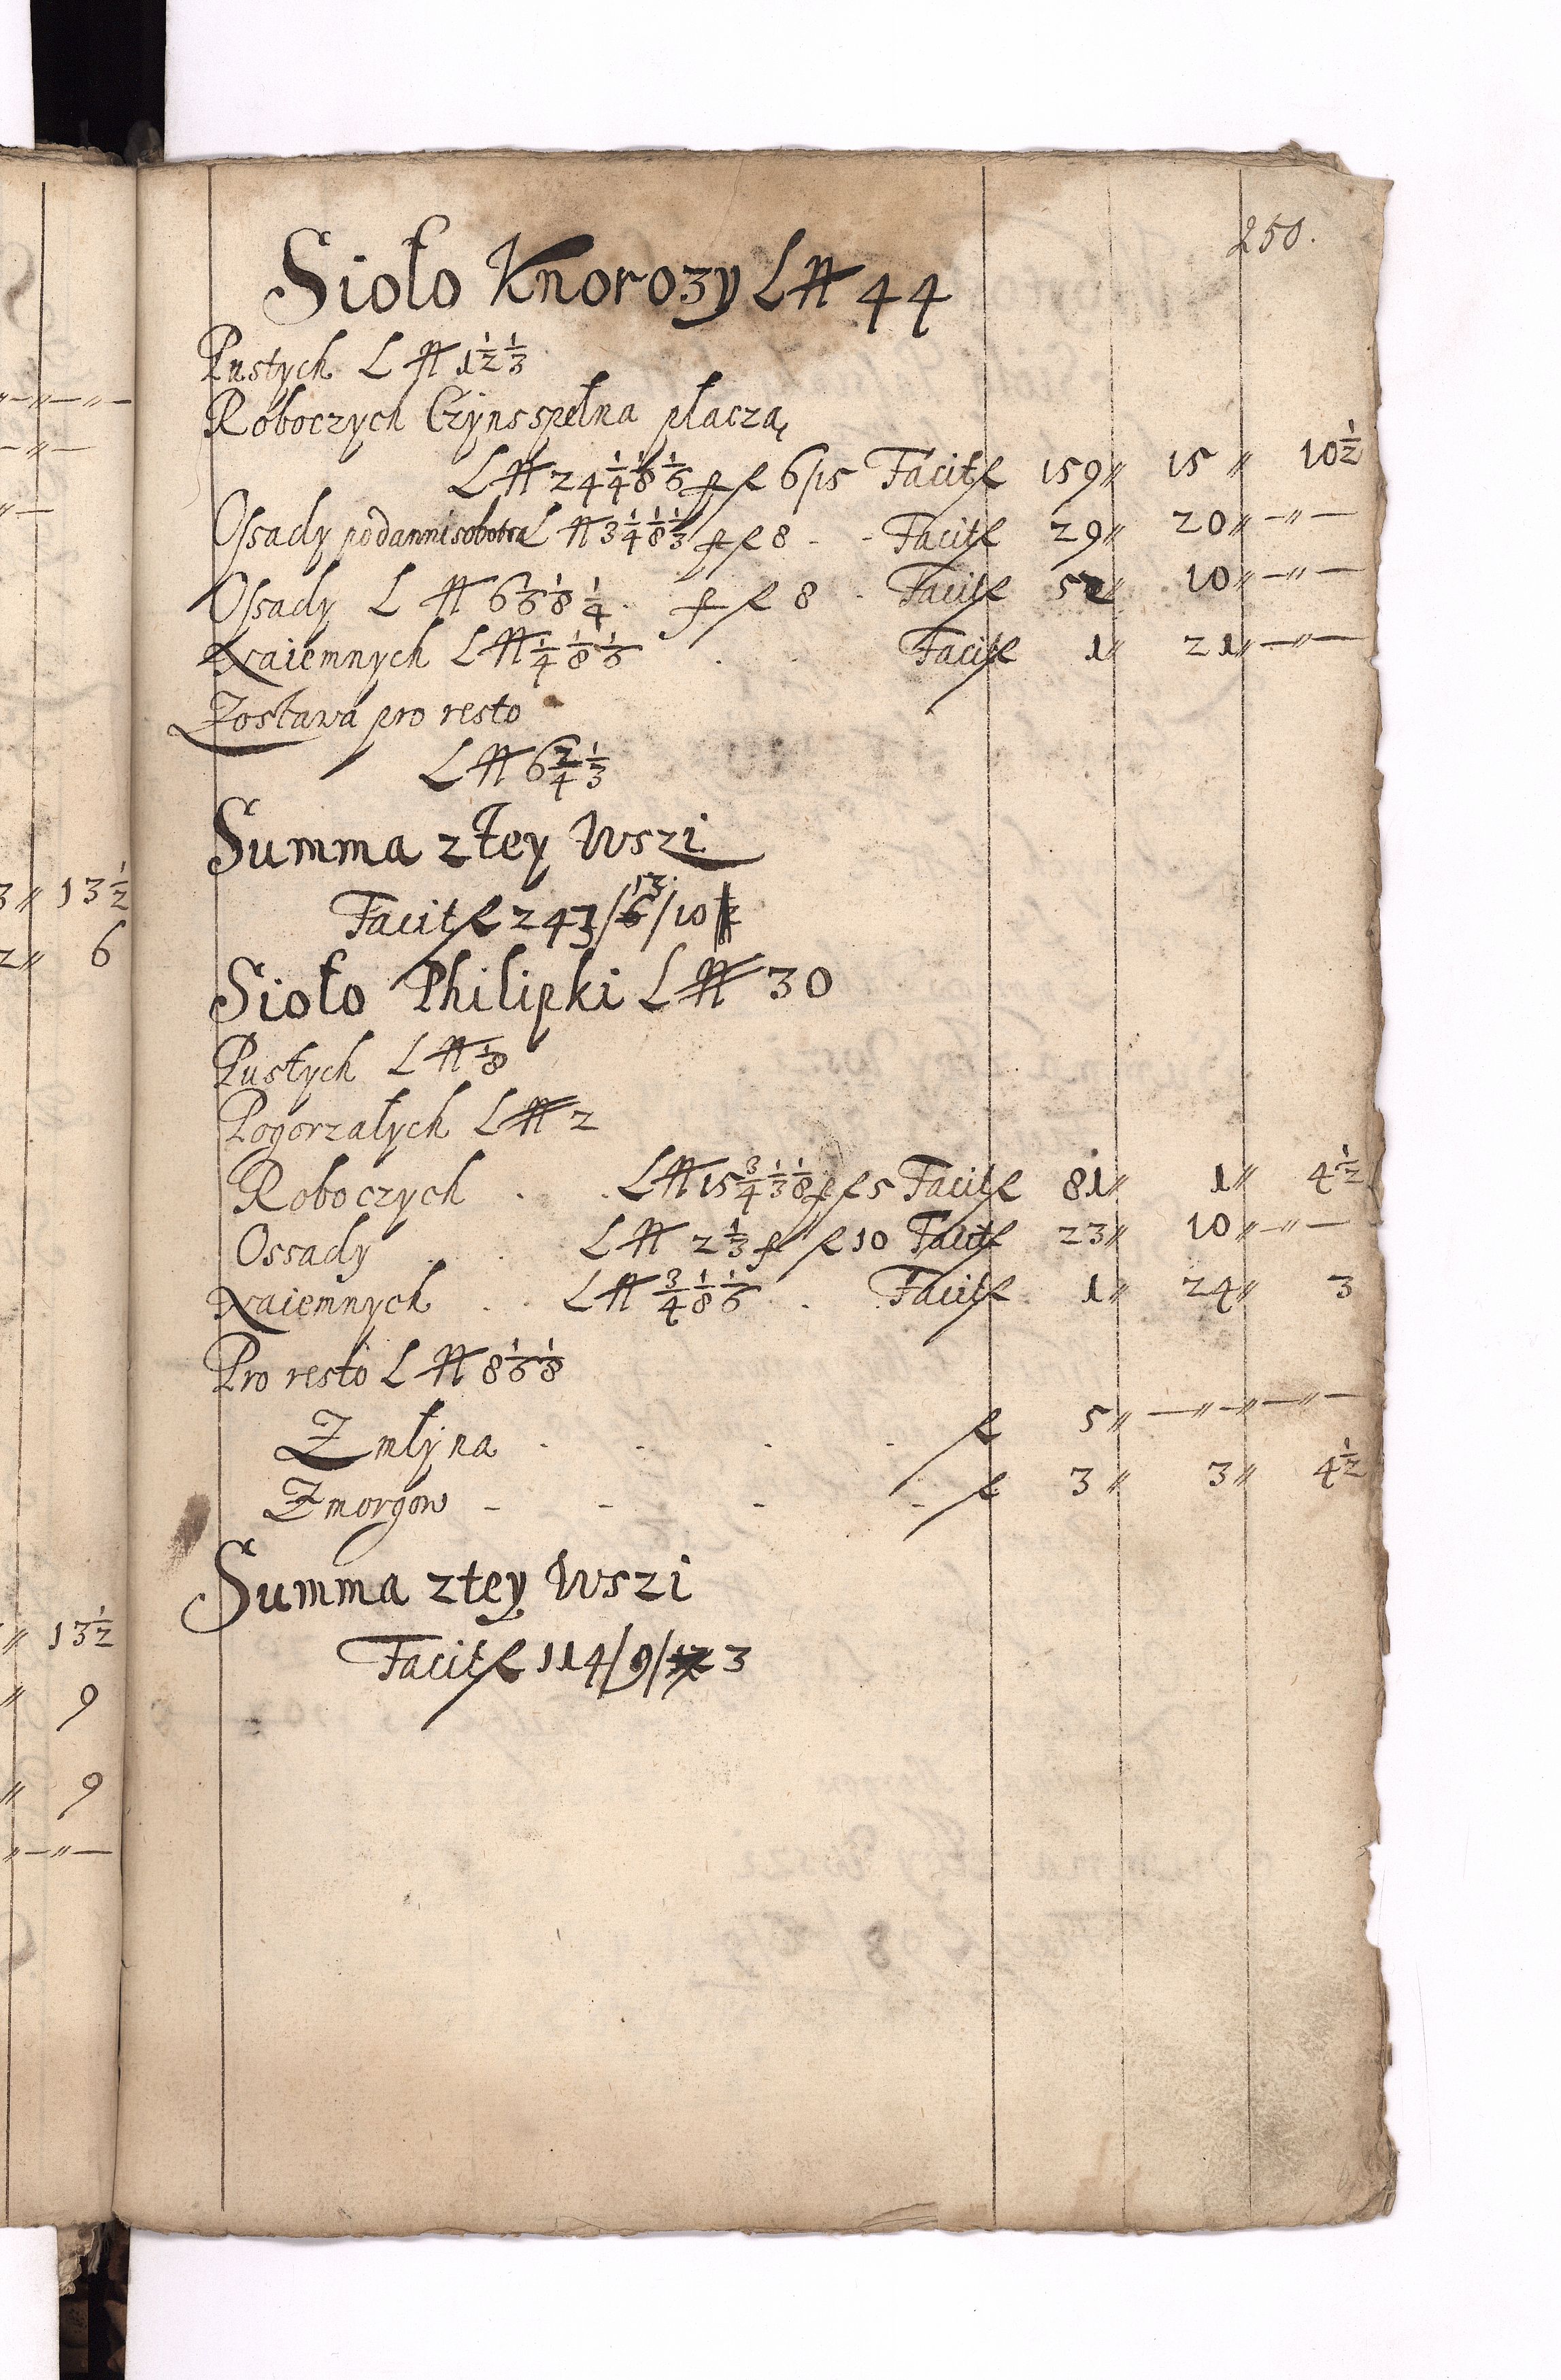 250.
Sioło Knorozy Lɫ 44
Pustych Lɫ 1 1/2 1/3
Roboczych Czyns spełna płaczą
Lɫ 24 1/4 1/8 1/6 p fl 6/15 Facit fl 159 〃 15 〃 10 1/2
Ossady podanni sobotra Lɫ 3 1/4 1/8 1/3 p fl 8 - - Facit fl 29 〃 20 〃 — 〃 —
Ossady Lɫ 6 1/6 1/8 1/4 p fl 8 . Facit fl 52 〃 10 〃 — 〃 —
Naiemnych Lɫ 1/4 1/8 1/6 . . Facit fl 1 〃 21 〃 — 〃 —
Zostawa pro resto
Lɫ 6 2/4 1/3
Summa z tey Wszi
Facit fl 243/13/10
Sioło Philipki Lɫ 30
Pustych Lɫ 1/8
Pogorzałych Lɫ 2
Roboczych . . Lɫ 15 3/4 1/3 1/8 p fl 5 Facit fl 81 〃 1 〃 4 1/2
Ossady . . Lɫ 2 1/3 p fl 10 Facit fl 23 〃 10 〃 — 〃 —
Naiemnych . . Lɫ 3/4 1/8 1/6 . Facit fl 1 〃 24 〃 3
Pro resto Lɫ 8 1/6 1/8
Z młyna . . . . fl 5 〃 — 〃 — 〃 —
Z morgow - - - - fl 3 〃 3 〃 4 1/2
Summa z tey Wszi
Facit fl 114/9/3
3 〃 13 1/2
2 〃 6
〃 13 1/2
〃 9
〃 9
〃 — 〃 —